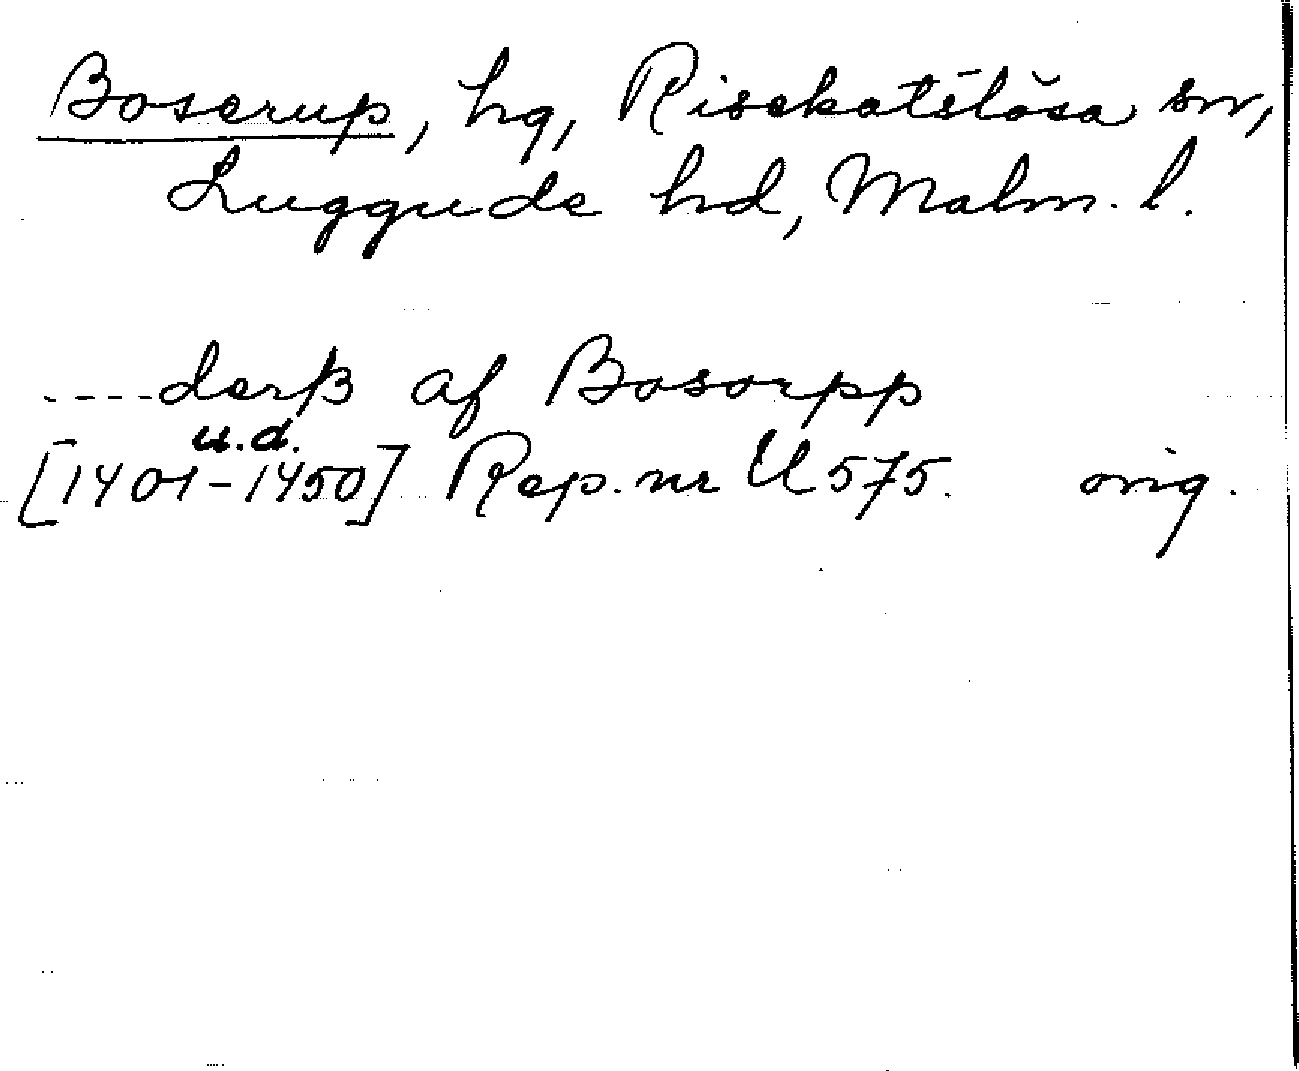 Boserup, hg, Risekatslösa sn,
Luggude hd, Malm. l.
----derß af Bosorpp
u.d.
[1401-1450] Rep. nr U 575. orig.